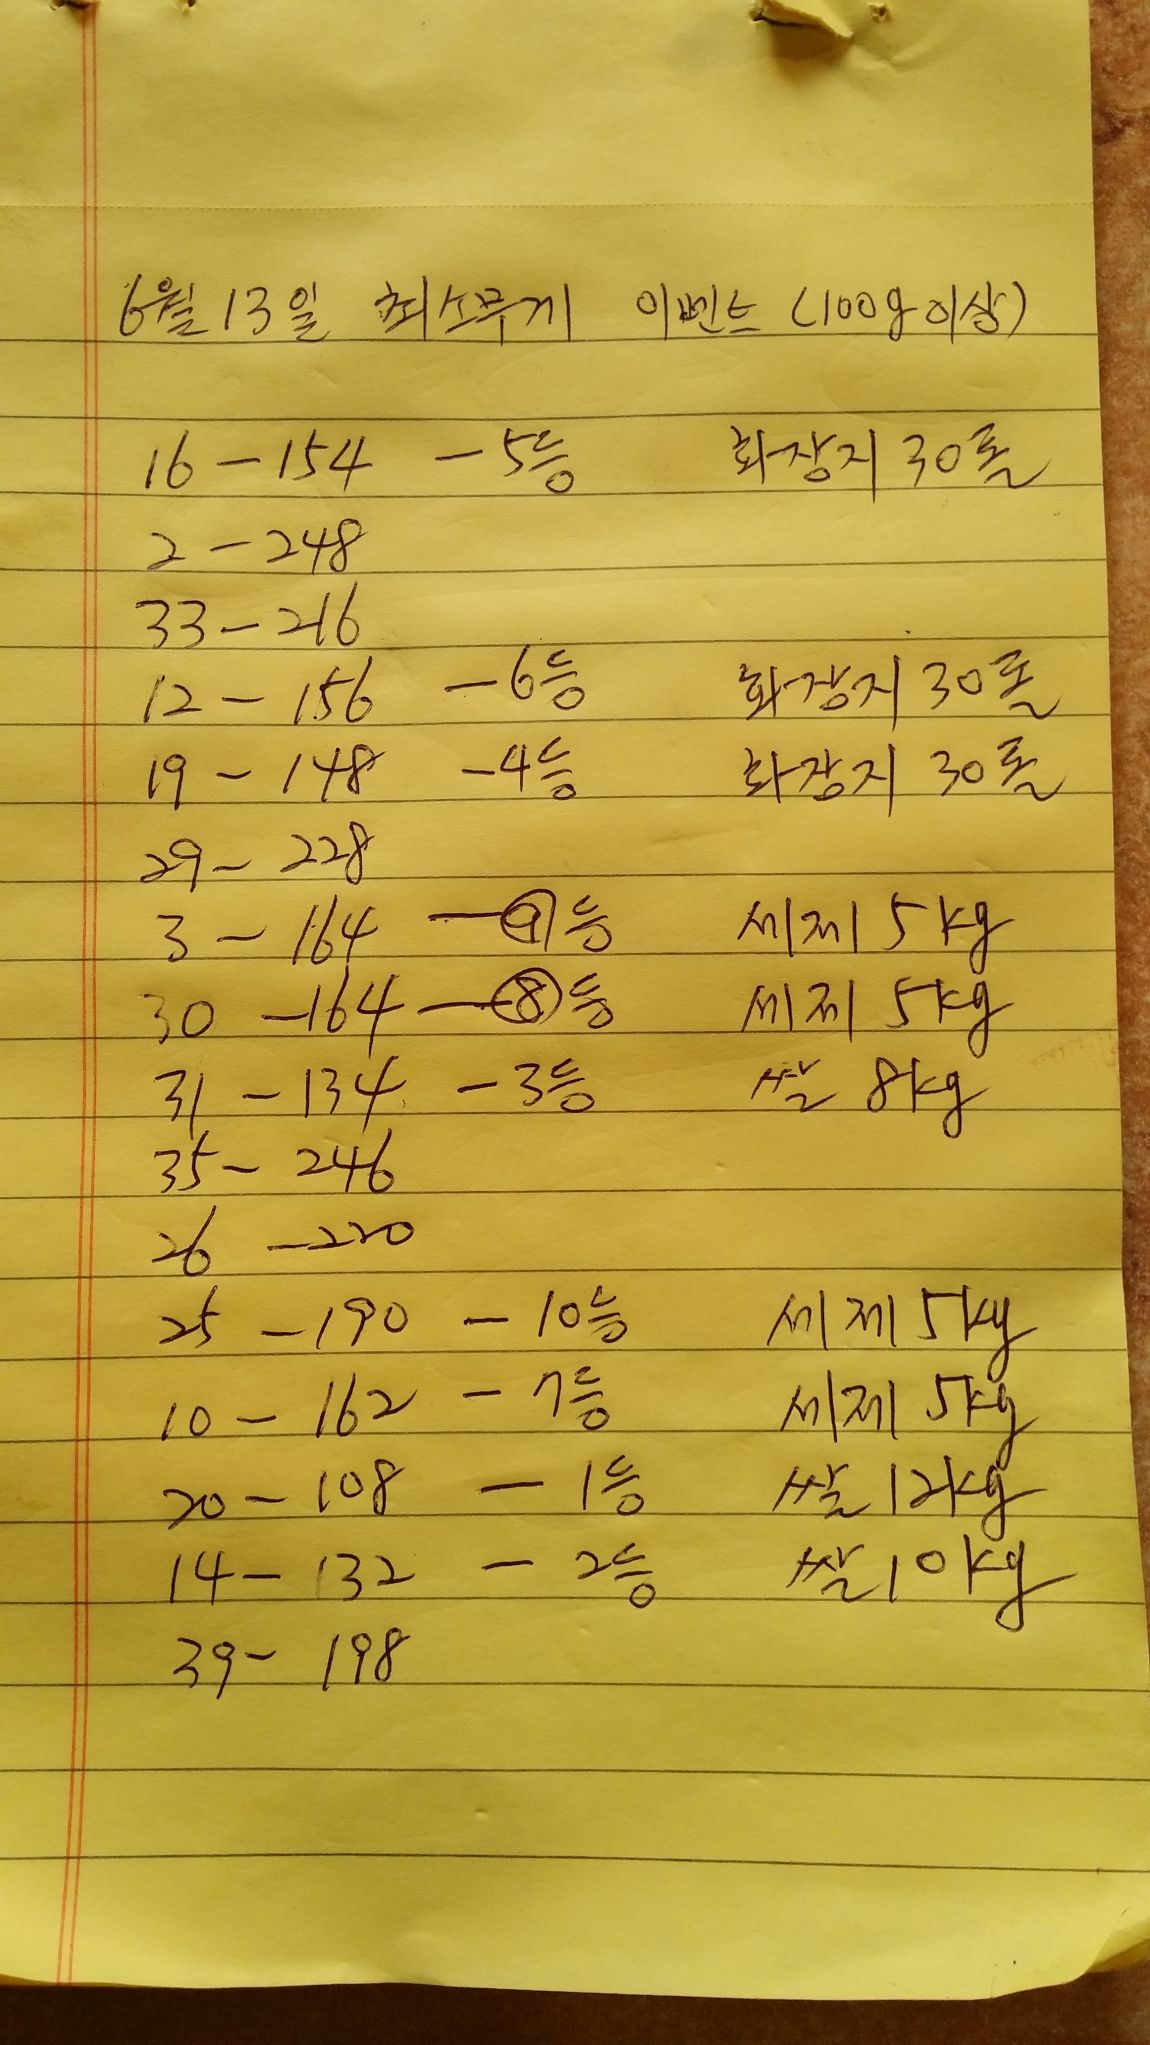 6월 13일 최소무게 이벤트 (100g이상)
16 - 154 - 5등 화장지 30롤
2 - 248
33 - 216
12 - 156 - 6등 화장지 30롤
19 - 148 - 4등 화장지 30롤
29 - 228
3 - 164 - 9등 세제 5kg
30 - 164 - 8등 세제 5kg
31 - 134 - 3등 쌀 8kg
35 - 246
26 - 220
25 - 190 - 10등 세제 5kg
10 - 162 - 7등 세제 5kg
20 - 108 - 1등 쌀 12kg
14 - 132 - 2등 쌀 10kg
39 - 198